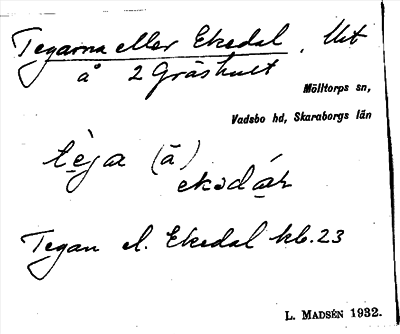 Tegarna eller Ekedal, Utl
å 2 Gråshult
Mölltorps sn,
Vadsbo hd, Skaraborgs län
tèga (ā)
ekədáḷ
Tegan el. Ekedal kb. 23
L. MADSÉN 1932.